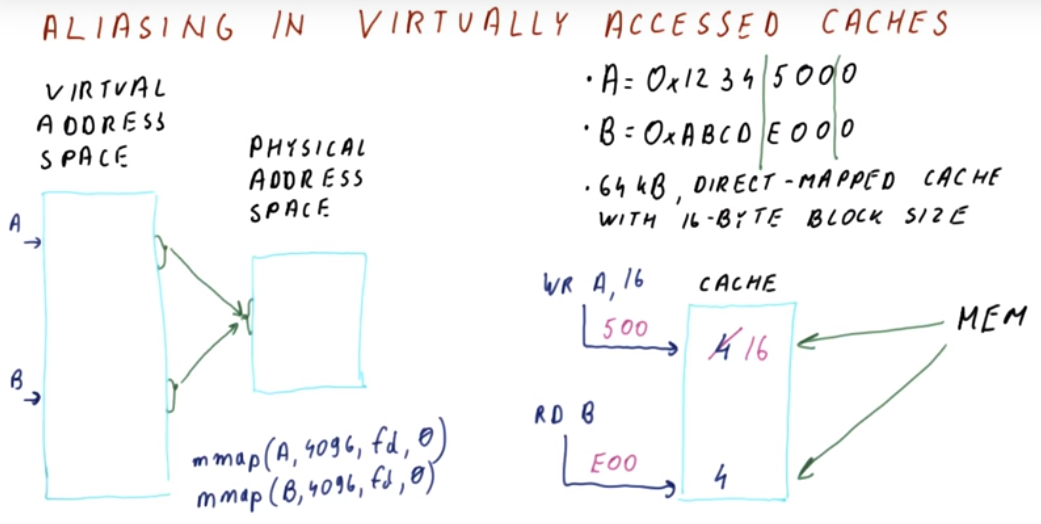 ALIASING IN VIRTUALLY ACCESSED CACHES
VIRTUAL
ADDRESS
SPACE
PHYSICAL
ADDRESS
SPACE
A
B
mmap(A,4096,fd,0)
mmap(B,4096,fd,0)
· A = 0x12345000
· B = 0xABCDE000
· 64 kB, DIRECT-MAPPED CACHE
WITH 16-BYTE BLOCK SIZE
WR A,16
500
CACHE
4 16
MEM
RD B
E00
4